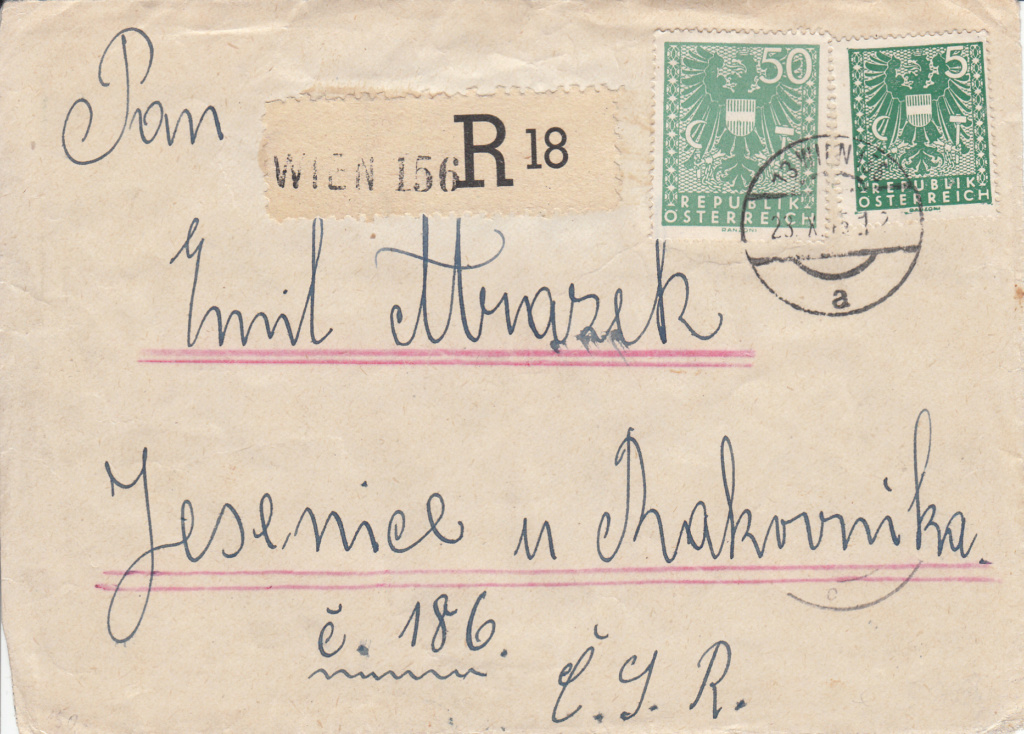 Pan
WIEN 156 R 18
50
REPUBLIK
ÖSTERREICH
DANZONI
5
REPUBLIK
ÖSTERREICH
DANZONI
WIEN
a
Emil Mrazek
Jesenice u Rakovníka.
č. 186.
Č. S. R.